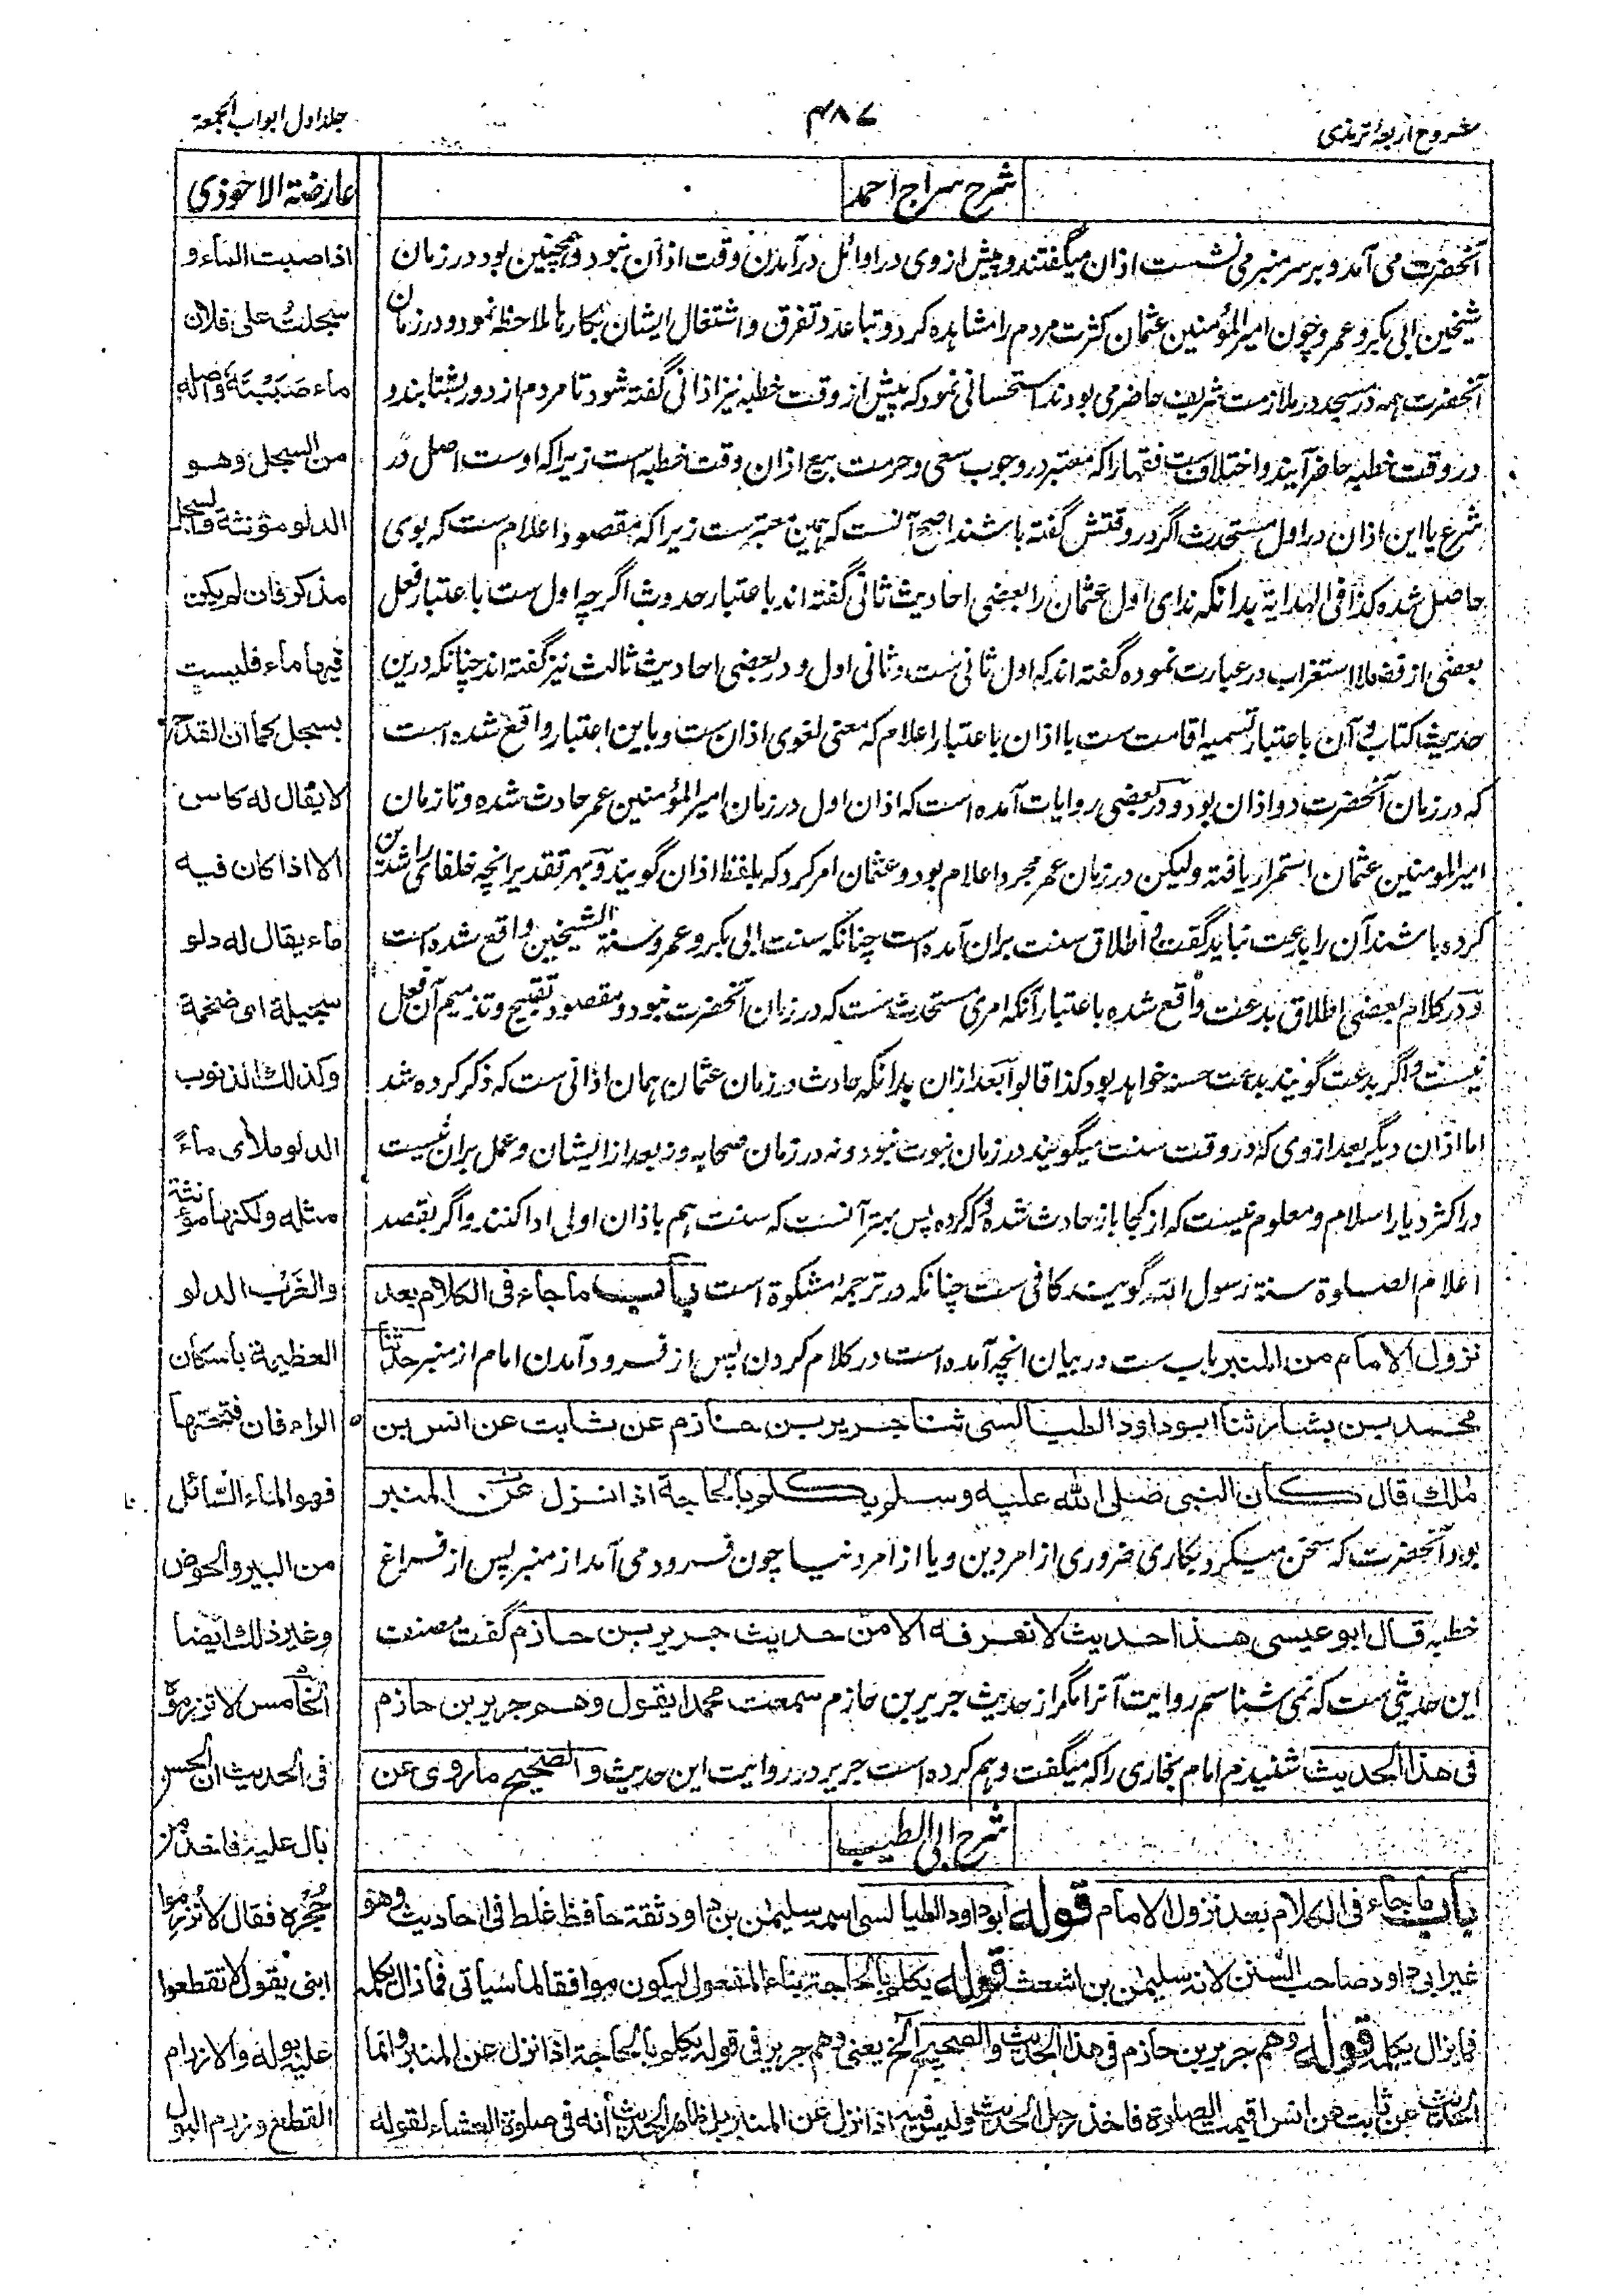 شروح اربعۂ ترمذی
۴۸۷
جلد اول ابواب الجمعة
شرح سراج احمد
آنحضرت می آمد و بر سر منبر می نشست اذان میگفتند و پیش از وی در اوائل در آمدن وقت اذان نبود و همچنین بود در زمان
شیخین ابی بکر و عمر و چون امیرالمؤمنین عثمان کثرت مردم را مشاهده کرد و تباعد و تفرق و اشتغال ایشان بکارها ملاحظه نمود و در زمان
آنحضرت همه در مسجد در ملازمت شریف حاضر می بودند استحسانی نمود که پیش از وقت خطبه نیز اذانی گفته شود تا مردم از دور بشتابند و
در وقت خطبه حاضر آیند و اختلاف ست فقها را که معتبر در وجوب سعی و حرمت بیع اذان وقت خطبه است زیرا که اوست اصل در
شرع یا این اذان در اول مستحدث اگر در وقتش گفته باشند اصح آنست که همین معتبرست زیرا که مقصود اعلام ست که بوی
حاصل شده کذا فی الهدایة بدانکه ندای اول عثمان را بعضی احادیث ثانی گفته اند باعتبار حدوث اگرچه اول ست باعتبار فعل
بعضی از فضلا استغراب در عبارت نموده گفته اند که اول ثانی ست و ثانی اول و در بعضی احادیث ثالث نیز گفته اند چنانکه درین
حدیث کتاب و آن باعتبار تسمیه اقامت ست با اذان باعتبار اعلام که معنی لغوی اذان ست و باین اعتبار واقع شده است
که در زمان آنحضرت دو اذان بود و در بعضی روایات آمده است که اذان اول در زمان امیرالمؤمنین عمر حادث شده و تا زمان
امیرالمومنین عثمان استمرار یافته ولیکن در زمان عمر مجرد اعلام بود و عثمان امر کرد که بلفظ اذان گویند و بهر تقدیر انچه خلفای راشدین
کرده باشند آن را بدعت نباید گفت و اطلاق سنت بران آمده است چنانکه سنت ابی بکر و عمر و سنة الشیخین واقع شده است
و در کلام بعضی اطلاق بدعت واقع شده باعتبار آنکه امری مستحدث ست که در زمان آنحضرت نبود و مقصود تقبیح و تذمیم آن فعل
نیست و اگر بدعت گویند بدعت حسنه خواهد بود کذا قالوا بعد ازان بدانکه حادث در زمان عثمان همان اذانی ست که ذکر کرده شد
اما اذان دیگر بعد از وی که در وقت سنت میگویند در زمان نبوت نبود و نه در زمان صحابه و نه بعد از ایشان و عمل بران نیست
در اکثر دیار اسلام و معلوم نیست که از کجا باز حادث شده و که کرده پس بهتر آنست که سنت هم باذان اولی ادا کنند و اگر بقصد
اعلام الصلوة سنة رسول الله گویند کافی ست چنانکه در ترجمه مشکوة است باب ما جاء فی الکلام بعد
نزول الامام من المنبر باب ست در بیان انچه آمده است در کلام کردن پس از فرود آمدن امام از منبر حدثنا
محمد بن بشار ثنا ابو داود الطیالسی ثنا جریر بن حازم عن ثابت عن انس بن
ملك قال کان النبی صلی الله علیه وسلم یکلم بالحاجة اذا نزل عن المنبر
بود آنحضرت که سخن میکرد بکاری ضروری از امر دین و یا از امر دنیا چون فرود می آمد از منبر پس از فراغ
خطبه قال ابو عیسی هذا حدیث لا نعرفه الا من حدیث جریر بن حازم گفت مصنف
این حدیثی ست که نمی شناسم روایت آنرا مگر از حدیث جریر بن حازم سمعت محمدا یقول وهم جریر بن حازم
فی هذا الحدیث شنیدم امام بخاری را که میگفت وهم کرده است جریر در روایت این حدیث والصحیح ما روی عن
شرح ابی الطیب
باب ما جاء فی الکلام بعد نزول الامام قوله ابو داود الطیالسی اسمه سلیمن بن داود ثقة حافظ غلط فی احادیث وهو
غیر ابی داود صاحب السنن لانه سلیمن بن اشعث قوله یکلم بالحاجة ببناء المفعول لیکون موافقا لما سیأتی فما زال یکلمه
فما یزال یکلمه قوله وهم جریر بن حازم فی هذا الحدیث والصحیح الخ یعنی وهم جریر فی قوله یکلم بالحاجة اذا نزل عن المنبر وانما
الحدیث عن ثابت عن انس اقیمت الصلوة فاخذ رجل الحدیث ولیس فیه اذا نزل عن المنبر بل ظاهر الحدیث انه فی صلوة العشاء لقوله
عارضة الاحوذی
اذا صببت الماء و
سجلت علی فلان
ماء صببته واصله
من السجل وهو
الدلو مؤنثة والسجل
مذکر فان لم یکن
فیها ماء فلیست
بسجل کما ان القدح
لا یقال له کاس
الا اذا کان فیه
ماء یقال له دلو
سجیلة ای ضخمة
وکذلك الذنوب
الدلو ملأی ماءً
مثله ولکنها مؤنثة
والغرب الدلو
العظیمة باسکان
الراء فان فتحتها
فهو الماء السائل
من البیر والحوض
وغیر ذلك ایضا
الخامس لا تزرموه
فی الحدیث ان الحسن
بال علیه فاخذ من
حجره فقال لا تزرموا
ابنی یقول لا تقطعوا
علیه بوله والازرام
القطع وزرم البول